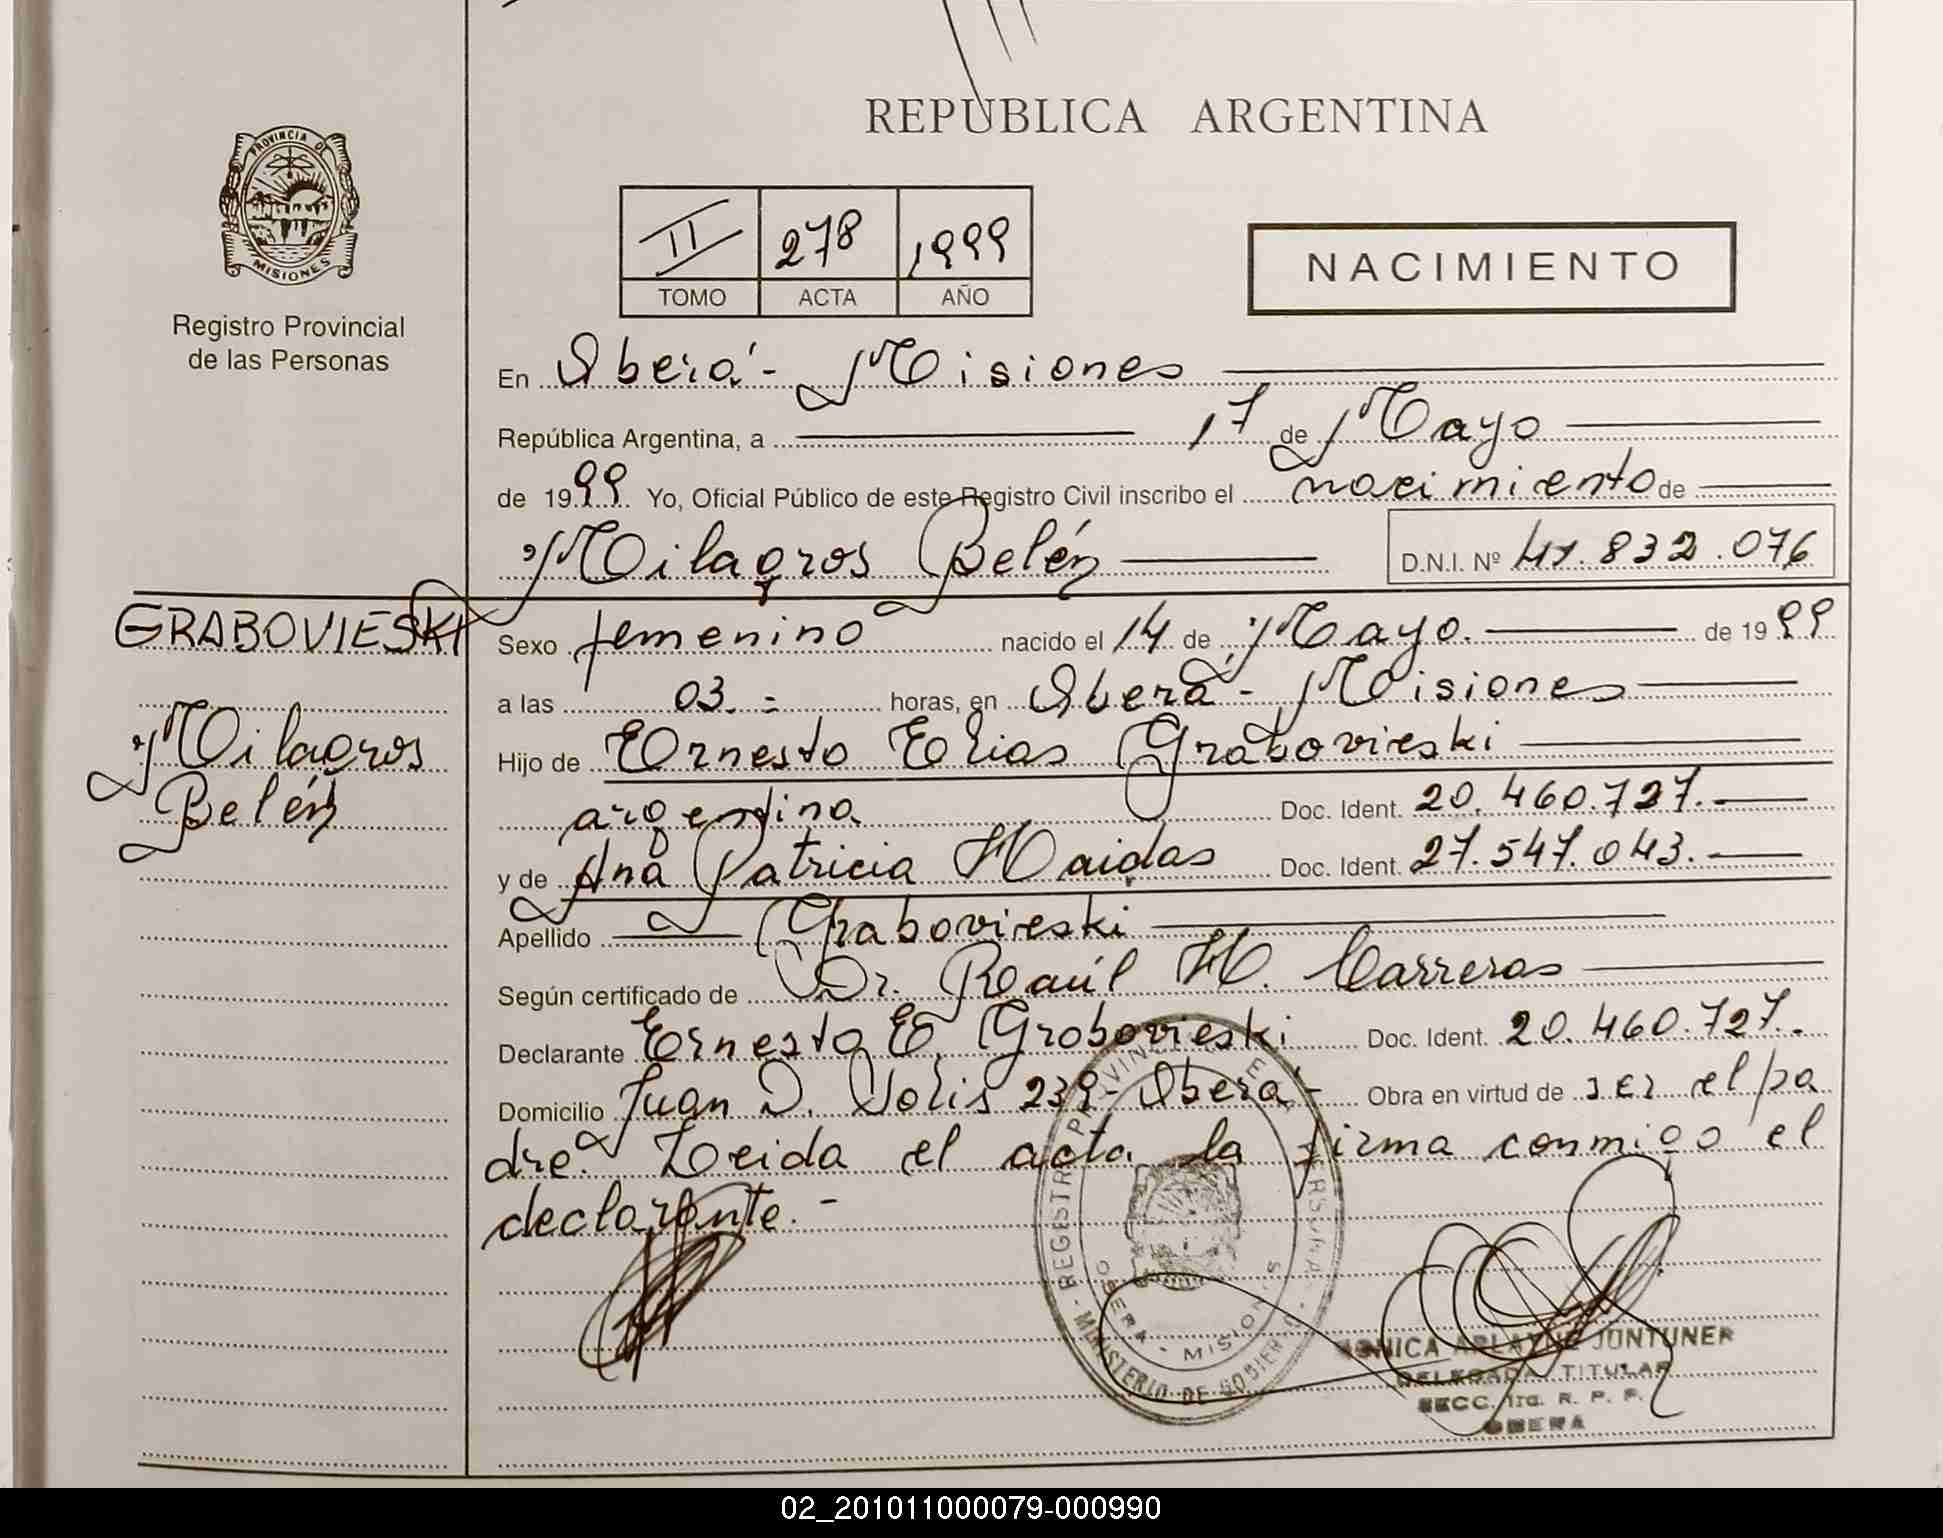 REPUBLICA ARGENTINA
PROVINCIA DE
MISIONES
Registro Provincial
de las Personas
II 278 1999
TOMO ACTA AÑO
NACIMIENTO
En Oberá - Misiones
República Argentina, a 17 de Mayo
de 1999 Yo, Oficial Público de este Registro Civil inscribo el nacimiento de
Milagros Belén D.N.I. Nº 41.832.076
GRABOVIESKI
Milagros
Belén
Sexo femenino nacido el 14 de Mayo. de 1999
a las 03.= horas, en Oberá - Misiones
Hijo de Ernesto Elias Grabovieski
argentina Doc. Ident. 20.460.727.
y de Ana Patricia Haidas Doc. Ident. 27.547.043.
Apellido Grabovieski
Según certificado de Dr. Raúl H. Carreras
Declarante Ernesto E. Grabovieski Doc. Ident. 20.460.727.
Domicilio Juan D. Solis 239 - Oberá - Obra en virtud de ser el pa
dre. Leida el acta la firma conmigo el
declarante. -
REGISTRO PROVINCIAL DE LAS PERSONAS - MINISTERIO DE GOBIERNO
OBERA - MISIONES
MONICA ARLAYNE JUNTUNER
DELEGADA TITULAR
SECC. 1ra. R. P. P.
OBERA
02_201011000079-000990